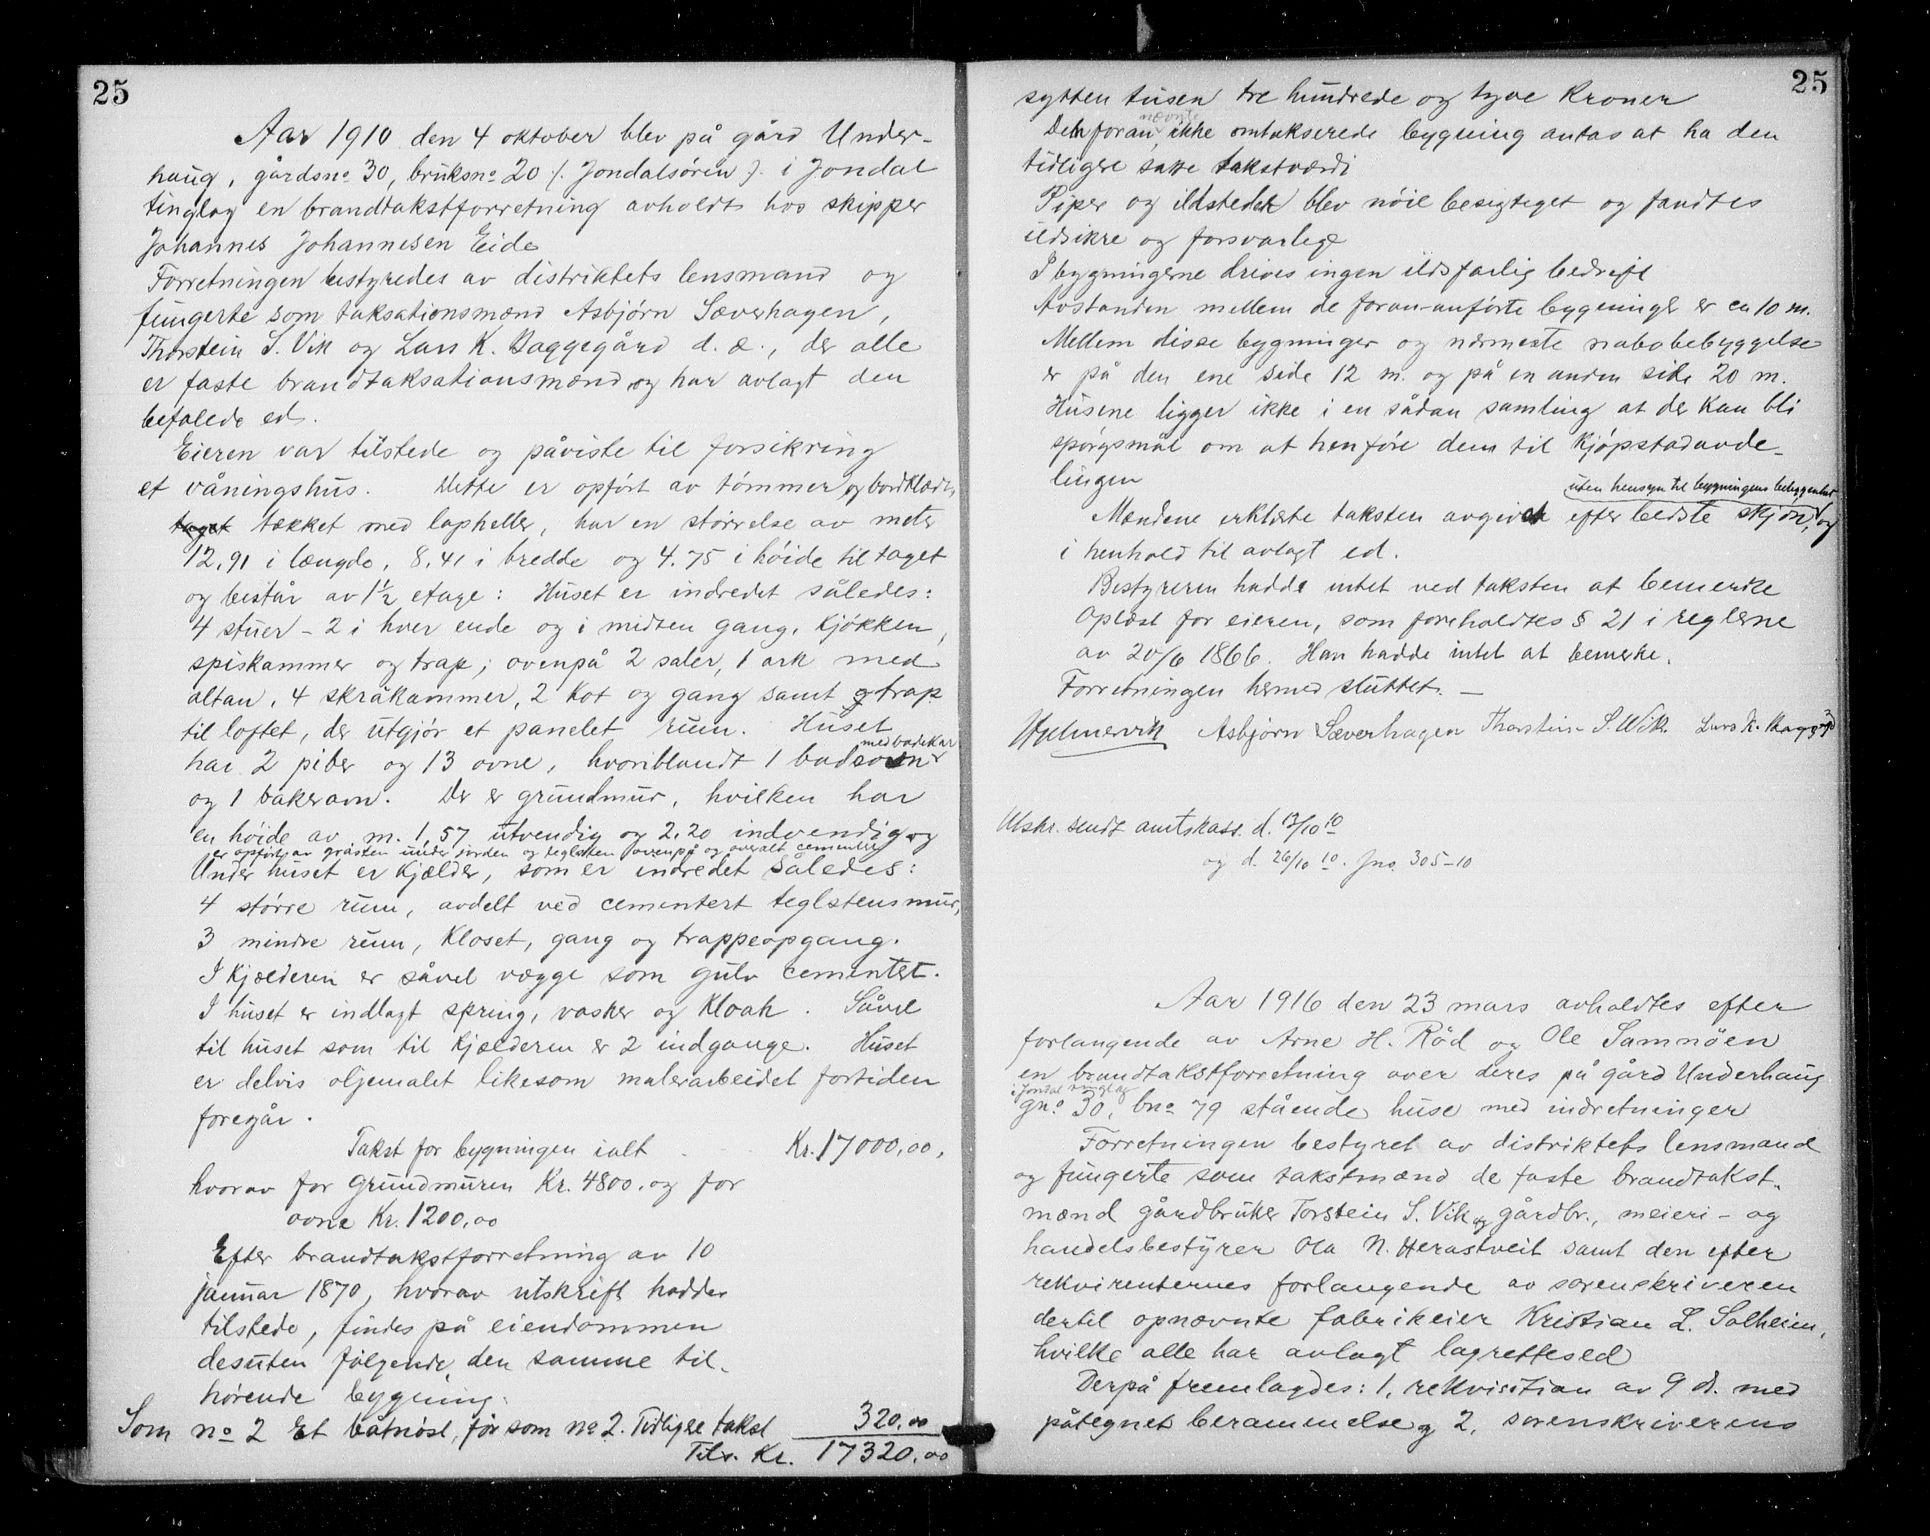 25
Aar 1910 den 4 oktober blev på gård Under-
haug, gårdsno 30, bruksno 20 /. Jondalsøren ./ i Jondal
tinglag en brandtakstforretning avholdt hos skipper
Johannes Johannesen Eide
Forretningen bestyredes av distriktets lensmand og
fungerte som taksationsmænd Asbjørn Sæverhagen,
Thorstein S. Vik og Lars K. Baggegård d. æ., der alle
er faste brandtaksationsmænd og har avlagt den
befalede ed.
Eieren var tilstede og påviste til forsikring
et våningshus. Dette er opført av tømmer og bordklædt,
taget tækket med lapheller, har en størrelse av meter
12,91 i længde, 8,41 i bredde og 4.75 i høide til taget
og består av 1½ etage: Huset er indredet således:
4 stuer - 2 i hver ende og i midten gang, kjøkken,
spiskammer og trap; ovenpå 2 saler, 1 ark med
altan, 4 skråkammer, 2 kot og gang samt trap
til loftet, der utgjør et panelet rum. Huset
har 2 piber og 13 ovne, hvoriblandt 1 badeovn med badekar
og 1 bakerovn. Der er grundmur, hvilken har
en høide av m. 1,57 utvendig og 2,20 indvendig og
er opført av gråsten under jorden og teglsten ovenpå og overalt cementert
Under huset er kjælder, som er indredet således:
4 større rum, avdelt ved cementert teglstensmur,
3 mindre rum, kloset, gang og trappeopgang.
I kjælderen er såvel vægge som gulv cementert.
I huset er indlagt spring, vasker og kloak. Såvel
til huset som til kjælderen er 2 indgange. Huset
er delvis oljemalet likesom malerarbeidet fortiden
foregår.
Takst for bygningen ialt Kr. 17000,00,
hvorav for grundmuren Kr. 4800. og for
ovne Kr. 1200,00
Efter brandtakstforretning av 10
januar 1870, hvorav utskrift haddes
tilstede, findes på eiendommen
desuten følgende, den samme til-
hørende bygning:
Som no 2 Et båtnøst, før som no 2. Tidligere takst 320,00
Tils. Kr. 17320,00
25
sytten tusen tre hundrede og tyve Kroner
Den foran nævnte ikke omtakserede bygning antas at ha den
tidligere satte takstværdi
Piper og ildsteder blev nøie besigtiget og fandtes
ildsikre og forsvarlige
I bygningerne drives ingen ildsfarlig bedrift
Avstanden mellem de foran anførte bygninger er ca 10 m.
Mellem disse bygninger og nærmeste nabobebyggelse
er på den ene side 12 m. og på en anden side 20 m.
Husene ligger ikke i en sådan samling at der kan bli
spørgsmål om at henføre dem til Kjøpstadavde-
lingen
uten hensyn til bygningens beliggenhet
Mændene erklærte taksten avgivet efter bedste skjøn, og
i henhold til avlagt ed.
Bestyreren hadde intet ved taksten at bemerke
Oplæst for eieren, som foreholdtes § 21 i reglerne
av 20/6 1866. Han hadde intet at bemerke.
Forretningen hermed sluttet. —
Hjelmervik Asbjørn Sæverhagen Thorstein S. Wik. Lars K. Baggegård
Utskr. sendt amtskass. d. 13/10 10
og d. 26/10 10. Jno. 305-10
Aar 1916 den 23 mars avholdtes efter
forlangende av Arne H. Röd og Ole Samnöen
en brandtakstforretning over deres på gård Underhaug
i Jondal tinglag
gno 30, bno 79 stående huse med indretninger
Forretningen bestyret av distriktets lensmand
og fungerte som takstmænd de faste brandtakst-
mænd gårdbruker Torstein S. Vik og gårdbr., meieri- og
handelsbestyrer Ola N. Herastveit samt den efter
rekvirenternes forlangende av sorenskriveren
dertil opnævnte fabrikeier Kristian L. Solheim,
hvilke alle har avlagt lagrettesed
Derpå fremlagdes: 1, rekvisition av 9 ds. med
påtegnet berammelse og 2, sorenskriverens